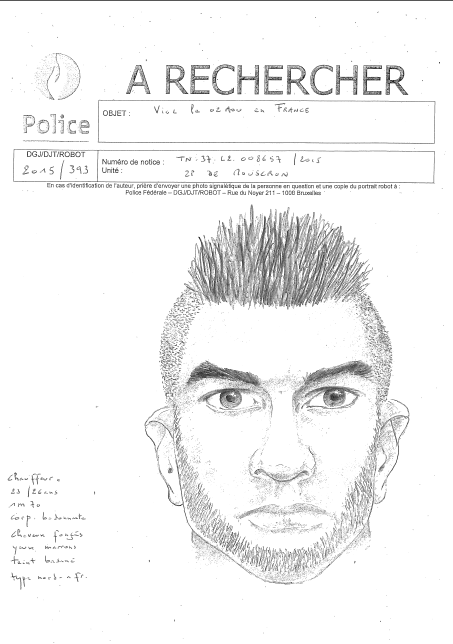 A RECHERCHER
Police
OBJET : Viol le 02 Aou en France
DGJ/DJT/ROBOT
2015/393
Numéro de notice : TN.37.L2.008657/2015
Unité : ZP DE MOUSCRON
En cas d'identification de l'auteur, prière d'envoyer une photo signalétique de la personne en question et une copie du portrait robot à :
Police Fédérale – DGJ/DJT/ROBOT – Rue du Noyer 211 – 1000 Bruxelles
chauffeur
23/26 ans
1m70
corp.
cheveux foncés
yeux marrons
teint basané
type nord-afr.